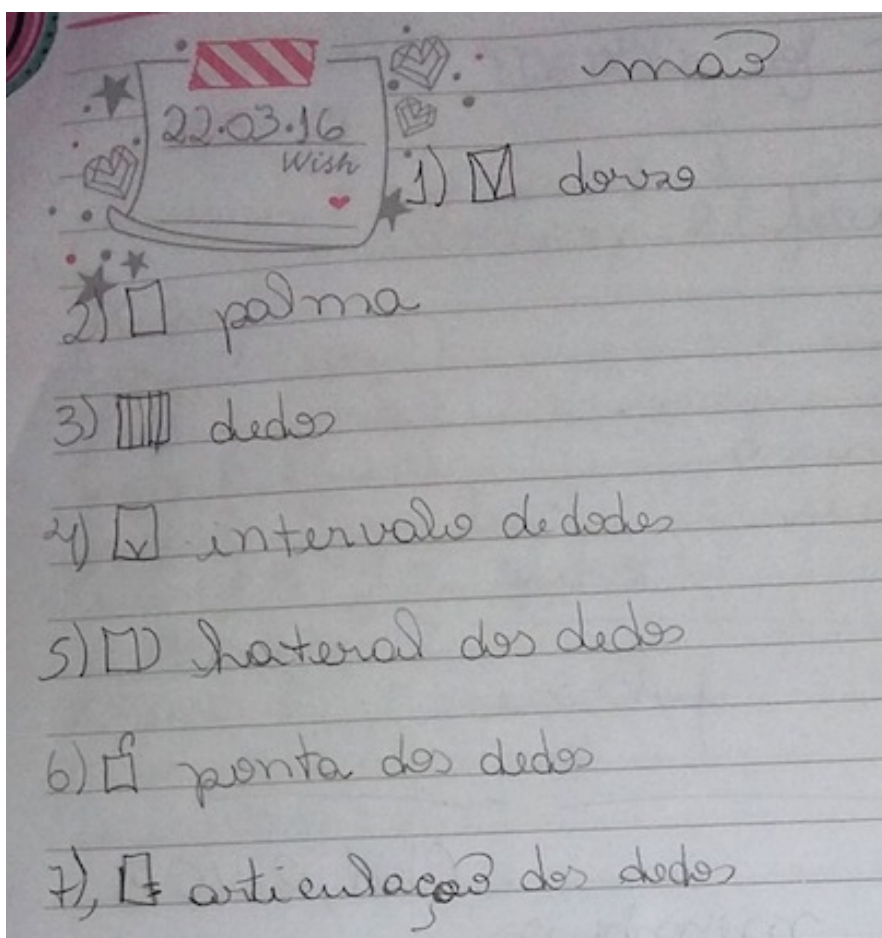 mão
22.03.16
Wish
1) dorso
2) palma
3) dedos
4) intervalo de dedos
5) Lateral dos dedos
6) ponta dos dedos
7), articulação dos dedos